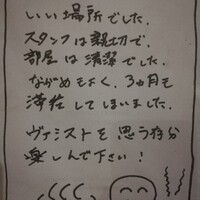 いい場所でした.
スタッフは親切で.
部屋は清潔でした.
ながめもよく.3ヵ月も
滞在してしまいました.
ヴァシストを思う存分
楽しんで下さい!